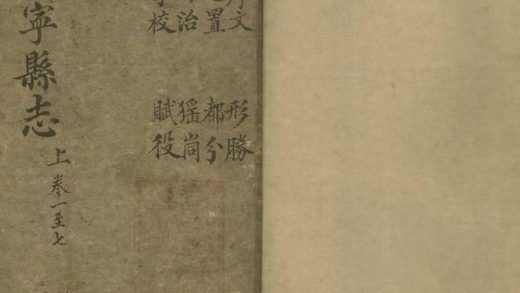 文 形勝
置 都分
治 猺峝
校 賦役
寧縣志 上 卷一至七